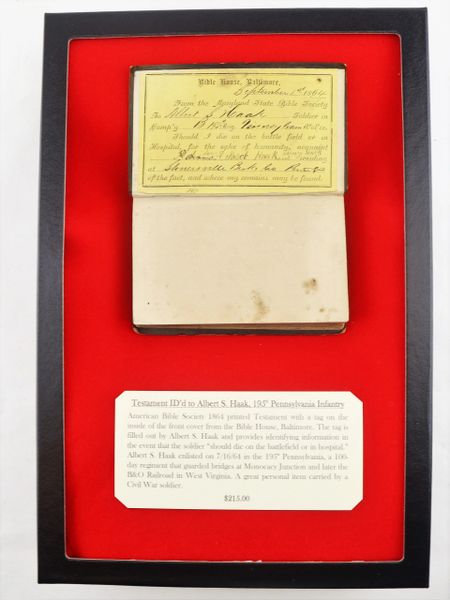 Bible House, Baltimore,
September 1st 1864
From the Maryland State Bible Society
To Albert S Haak Soldier in
Comp'y B
Should I die on the battle field or in
Hospital, for the sake of humanity, acquaint
residing
at
of the fact, and where my remains may be found.
Testament ID'd to Albert S. Haak, 195th Pennsylvania Infantry
American Bible Society 1864 printed Testament with a tag on the
inside of the front cover from the Bible House, Baltimore. The tag is
filled out by Albert S. Haak and provides identifying information in
the event that the soldier "should die on the battlefield or in hospital."
Albert S. Haak enlisted on 7/16/64 in the 195th Pennsylvania, a 100-
day regiment that guarded bridges at Monocacy Junction and later the
B&O Railroad in West Virginia. A great personal item carried by a
Civil War soldier.
$215.00